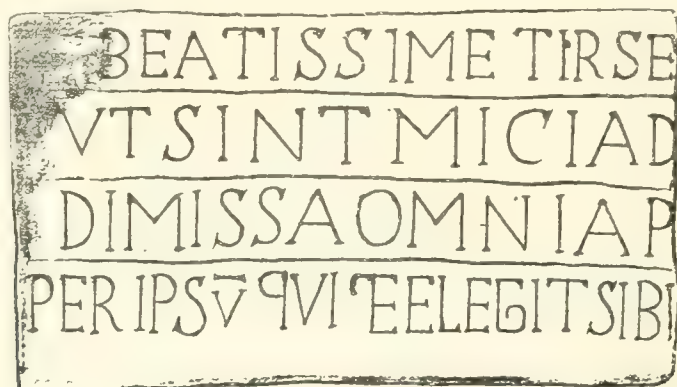 BEATISSIME TIRSE
VT SINT MICI AD
DIMISSA OMNIA P
PER IPSV̄ QVI TE ELEGIT SIBI